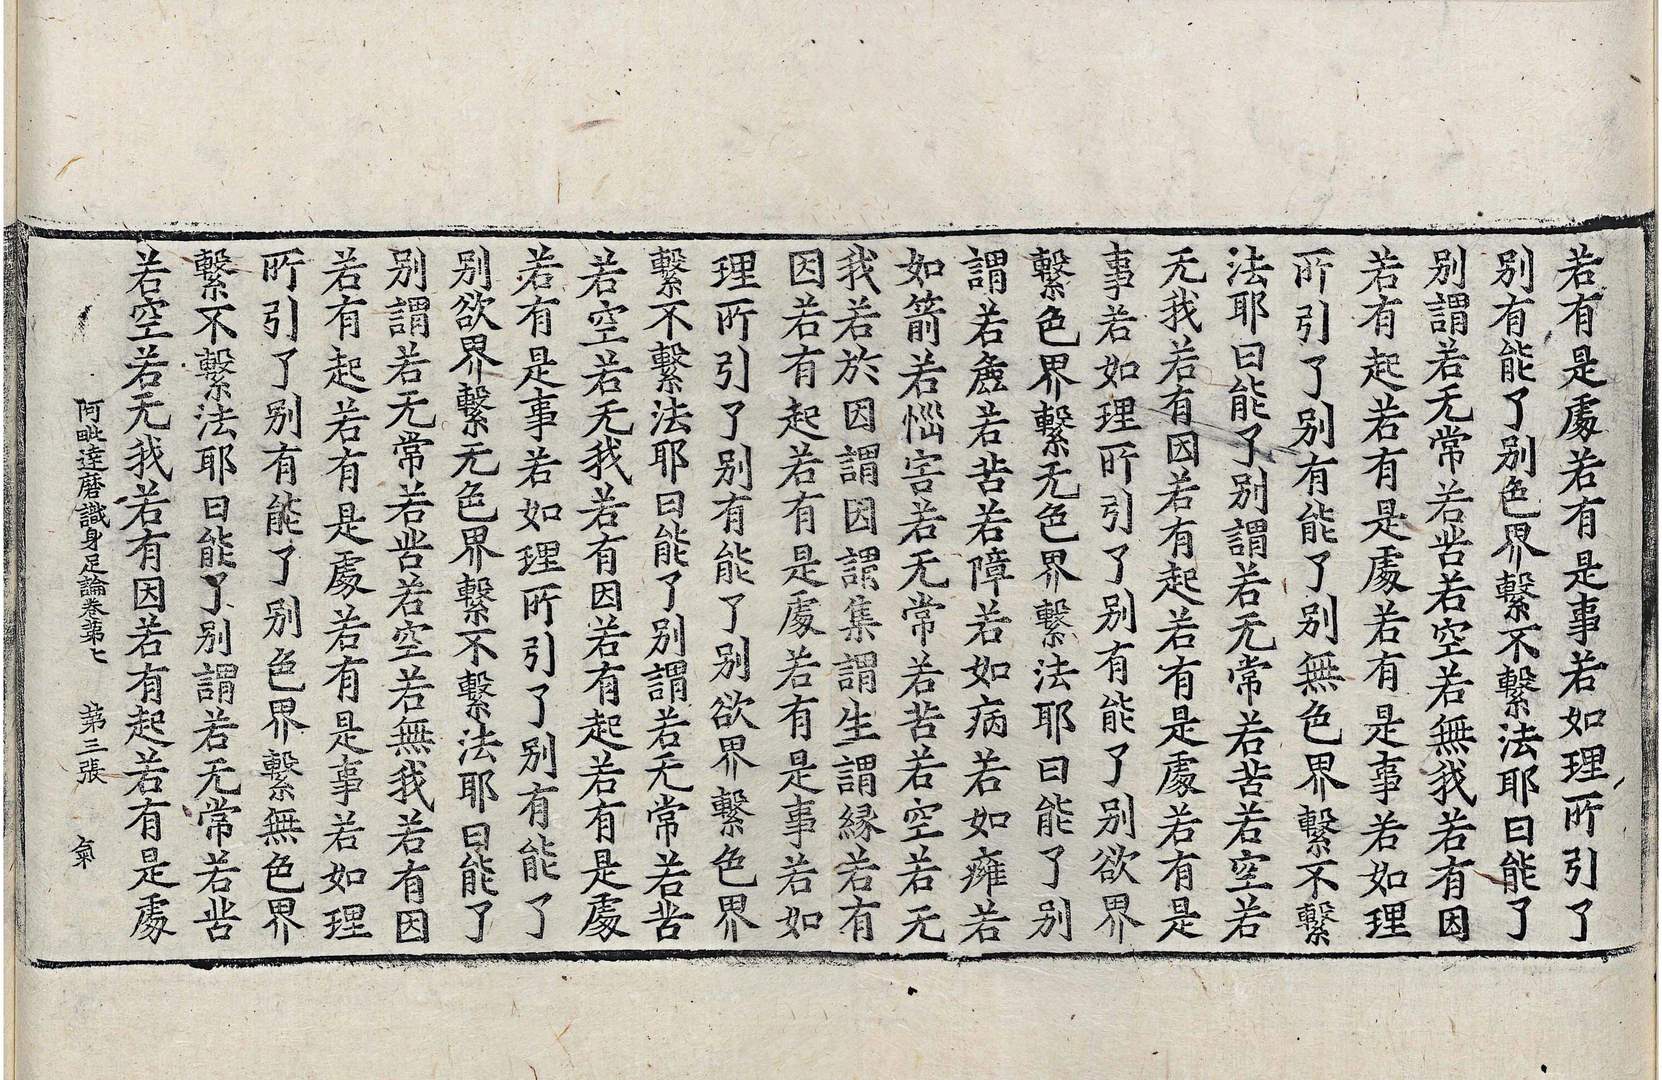 若有是處若有是事若如理所引了
別有能了別色界繫不繫法耶曰能了
別謂若无常若苦若空若無我若有因
若有起若有是處若有是事若如理
所引了別有能了別無色界繫不繫
法耶曰能了別謂若无常若苦若空若
无我若有因若有起若有是處若有是
事若如理所引了別有能了別欲界
繫色界繫无色界繫法耶曰能了別
謂若麁若苦若障若如病若如癰若
如箭若惱害若无常若苦若空若无
我若於因謂因謂集謂生謂緣若有
因若有起若有是處若有是事若如
理所引了別有能了別欲界繫色界
繫不繫法耶曰能了別謂若无常若苦
若空若无我若有因若有起若有是處
若有是事若如理所引了別有能了
別欲界繫无色界繫不繫法耶曰能了
別謂若无常若苦若空若無我若有因
若有起若有是處若有是事若如理
所引了別有能了別色界繫無色界
繫不繫法耶曰能了別謂若无常若苦
若空若无我若有因若有起若有是處
阿毗達磨識身足論卷第七 第三張 氣